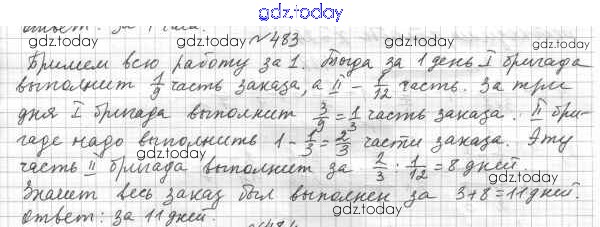 gdz.today
ответ: за
№483
gdz.today gdz.today
Примем всю работу за 1. Тогда за 1 день I бригада
выполнит 1/9 часть заказа, а II - 1/12 часть. За три
gdz.today gdz.today
дня I бригада выполнит 3/9 = 1/3 часть заказа. II бри-
гаде надо выполнить 1 - 1/3 = 2/3 части заказа. Эту
gdz.today gdz.today
часть II бригада выполнит за 2/3 : 1/12 = 8 дней
Значит весь заказ был выполнен за 3+8=11 дней.
ответ: за 11 дней.
gdz.today
№484